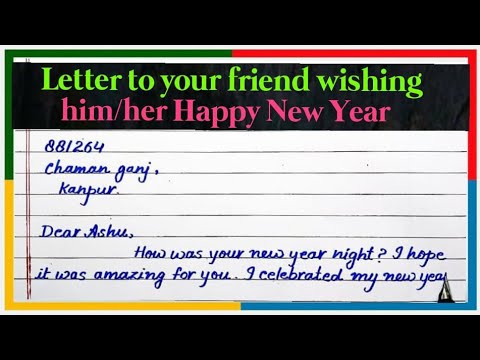 Letter to your friend wishing
him/her Happy New Year
88/264
Chaman ganj,
Kanpur.
Dear Ashu,
How was your new year night? I hope
it was amazing for you. I celebrated my new year